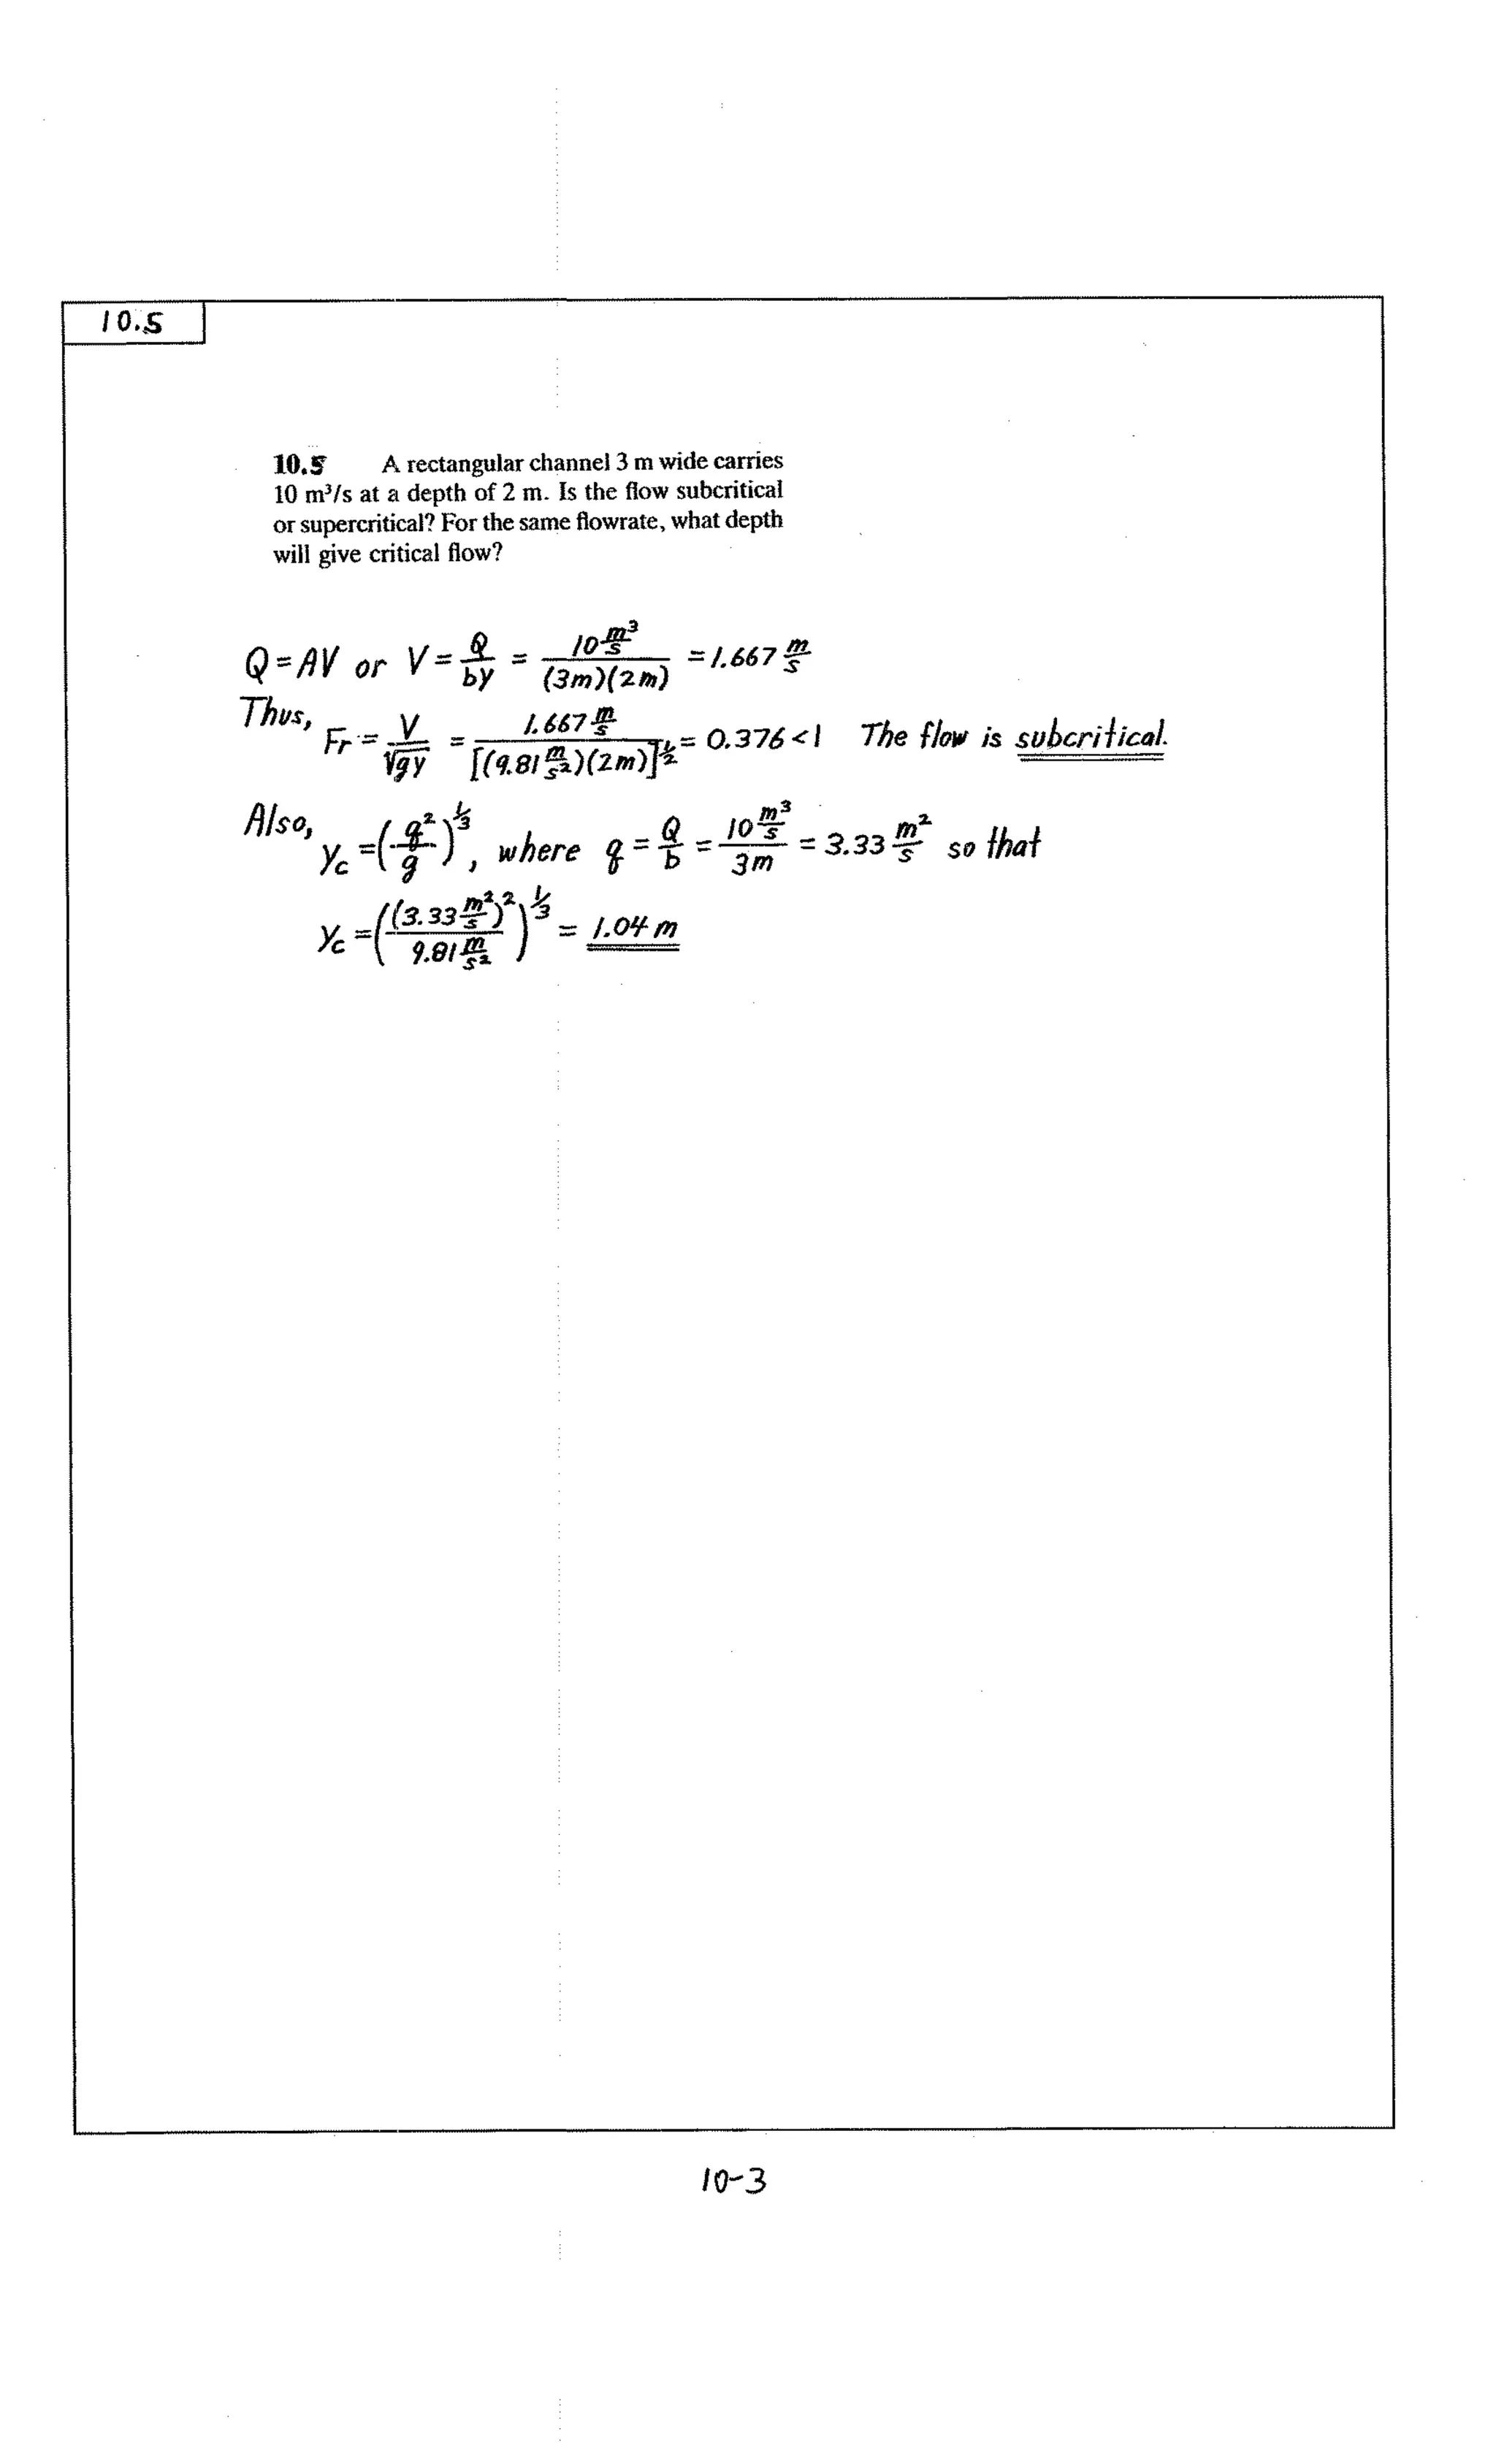 10.5
10.5 A rectangular channel 3 m wide carries
10 m³/s at a depth of 2 m. Is the flow subcritical
or supercritical? For the same flowrate, what depth
will give critical flow?
Q = AV or V = Q/by = 10 m³/s / (3m)(2m) = 1.667 m/s
Thus, Fr = V/√gy = 1.667 m/s / [(9.81 m/s²)(2m)]^½ = 0.376 < 1 The flow is subcritical.
Also, yc = (q²/g)^⅓, where q = Q/b = 10 m³/s / 3m = 3.33 m²/s so that
yc = ((3.33 m²/s)² / 9.81 m/s²)^⅓ = 1.04 m
10-3